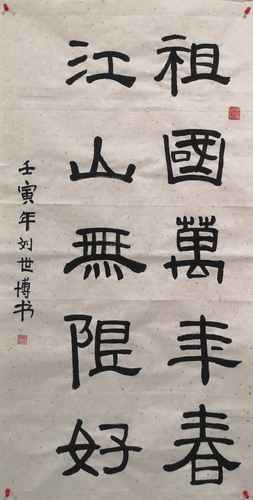 祖國萬年春
江山無限好
壬寅年刘世博书